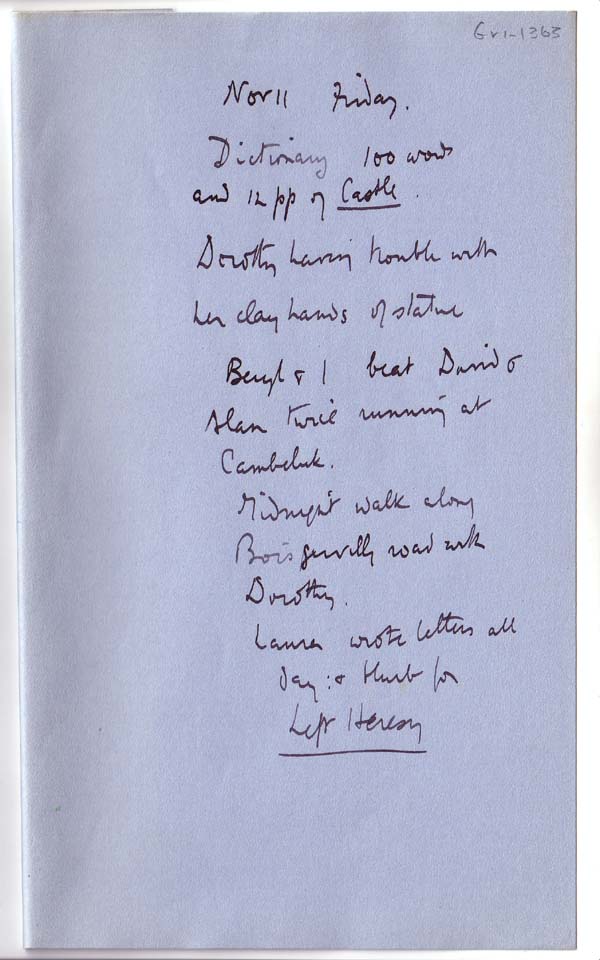 Gr1-1363
Nov 11 Friday.
Dictionary 100 words
and 12 pp of Castle.
Dorothy having trouble with
her clay hands of statue
Beryl & I beat David &
Alan twice running at
Cambeluk.
Midnight walk along
Boisgervilly road with
Dorothy.
Laura wrote letters all
day: & blurb for
Left Heresy